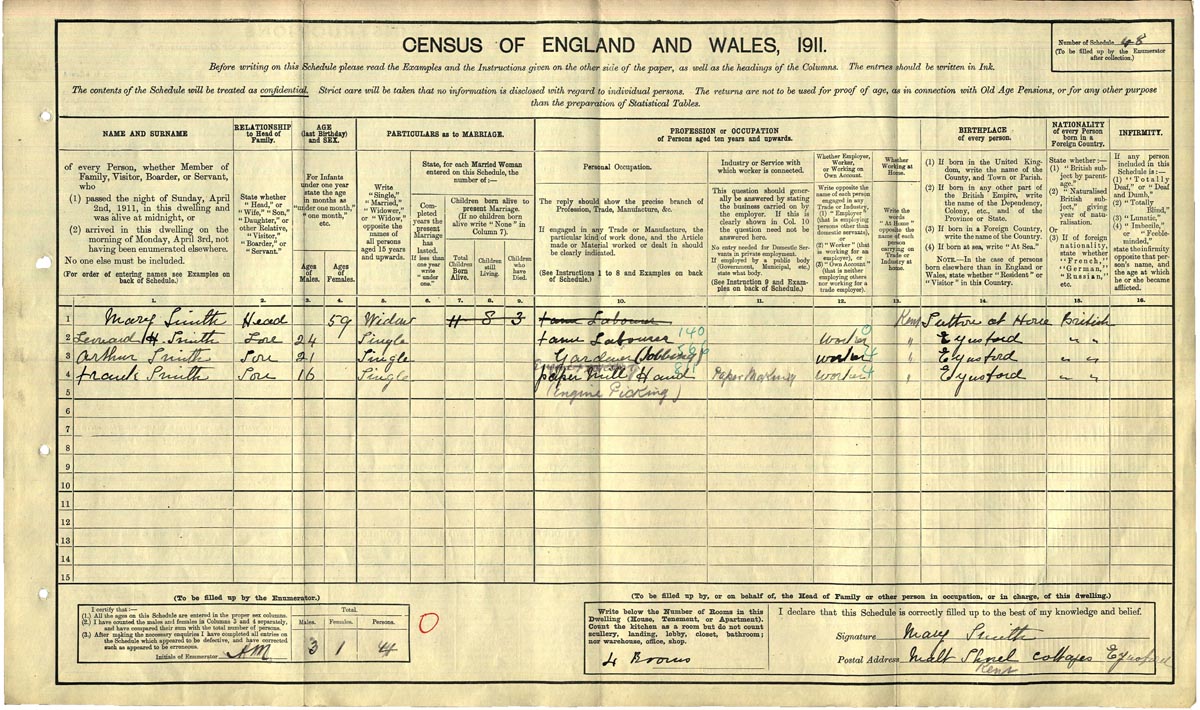 CENSUS OF ENGLAND AND WALES, 1911.
Number of Schedule 48
(To be filled up by the Enumerator
after collection.)
Before writing on this Schedule please read the Examples and the Instructions given on the other side of the paper, as well as the headings of the Columns. The entries should be written in Ink.
The contents of the Schedule will be treated as confidential. Strict care will be taken that no information is disclosed with regard to individual persons. The returns are not to be used for proof of age, as in connection with Old Age Pensions, or for any other purpose
than the preparation of Statistical Tables.
NAME AND SURNAME
of every Person, whether Member of
Family, Visitor, Boarder, or Servant,
who
(1) passed the night of Sunday, April
2nd, 1911, in this dwelling and
was alive at midnight, or
(2) arrived in this dwelling on the
morning of Monday, April 3rd, not
having been enumerated elsewhere.
No one else must be included.
(For order of entering names see Examples on
back of Schedule.)
RELATIONSHIP
to Head of
Family.
State whether
"Head," or
"Wife," "Son,"
"Daughter," or
other Relative,
"Visitor,"
"Boarder," or
"Servant."
AGE
(last Birthday)
and SEX.
For Infants
under one year
state the age
in months as
"under one month,"
"one month,"
etc.
Ages
of
Males.
Ages
of
Females.
PARTICULARS as to MARRIAGE.
Write
"Single,"
"Married,"
"Widower,"
or "Widow,"
opposite the
names of
all persons
aged 15 years
and upwards.
State, for each Married Woman
entered on this Schedule, the
number of :—
Completed
years the
present
Marriage
has
lasted.
If less than
one year
write
"under
one."
Children born alive to
present Marriage.
(If no children born
alive write "None" in
Column 7).
Total
Children
Born
Alive.
Children
still
Living.
Children
who
have
Died.
PROFESSION or OCCUPATION
of Persons aged ten years and upwards.
Personal Occupation.
The reply should show the precise branch of
Profession, Trade, Manufacture, &c.
If engaged in any Trade or Manufacture, the
particular kind of work done, and the Article
made or Material worked or dealt in should
be clearly indicated.
(See Instructions 1 to 8 and Examples on back
of Schedule.)
Industry or Service with
which worker is connected.
This question should gener-
ally be answered by stating
the business carried on by
the employer. If this is
clearly shown in Col. 10
the question need not be
answered here.
No entry needed for Domestic Ser-
vants in private employment.
If employed by a public body
(Government, Municipal, etc.)
state what body.
(See Instruction 9 and Exam-
ples on back of Schedule.)
Whether Employer,
Worker,
or Working on
Own Account.
Write opposite the
name of each person
engaged in any
Trade or Industry,
(1) "Employer"
(that is employing
persons other than
domestic servants),
or
(2) "Worker" (that
is working for an
employer), or
(3) "Own Account"
(that is neither
employing others
nor working for a
trade employer).
Whether
Working at
Home.
Write the
words
"At Home"
opposite the
name of each
person
carrying on
Trade or
Industry at
home.
BIRTHPLACE
of every person.
(1) If born in the United King-
dom, write the name of the
County, and Town or Parish.
(2) If born in any other part of
the British Empire, write
the name of the Dependency,
Colony, etc., and of the
Province or State.
(3) If born in a Foreign Country,
write the name of the Country.
(4) If born at sea, write "At Sea."
NOTE.—In the case of persons
born elsewhere than in England or
Wales, state whether "Resident" or
"Visitor" in this Country.
NATIONALITY
of every Person
born in a
Foreign Country.
State whether :—
(1) "British sub-
ject by parent-
age."
(2) "Naturalised
British sub-
ject," giving
year of natu-
ralisation.
Or
(3) If of foreign
nationality,
state whether
"French,"
"German,"
"Russian,"
etc.
INFIRMITY.
If any person
included in this
Schedule is :—
(1) "Totally
Deaf," or "Deaf
and Dumb,"
(2) "Totally
Blind,"
(3) "Lunatic,"
(4) "Imbecile,"
or "Feeble-
minded,"
state the infirmity
opposite that per-
son's name, and
the age at which
he or she became
afflicted.
1. 2. 3. 4. 5. 6. 7. 8. 9. 10. 11. 12. 13. 14. 15. 16.
1 Mary Smith Head 59 Widow 11 8 3 Farm Labourer Kent Sutton at Hone British
2 Leonard H. Smith Son 24 Single Farm Labourer 140 Worker 0 " Eynsford " "
3 Arthur Smith Son 21 Single Gardener (Jobbing) Worker 4 " Eynsford " "
4 Frank Smith Son 16 Single Paper Mill Hand Paper Making Worker 4 " Eynsford " "
5 (Engine Picking)
6
7
8
9
10
11
12
13
14
15
(To be filled up by the Enumerator.)
I certify that :—
(1.) All the ages on this Schedule are entered in the proper sex columns.
(2.) I have counted the males and females in Columns 3 and 4 separately,
and have compared their sum with the total number of persons.
(3.) After making the necessary enquiries I have completed all entries on
the Schedule which appeared to be defective, and have corrected
such as appeared to be erroneous.
Initials of Enumerator AM
Total.
Males. Females. Persons.
3 1 4
0
(To be filled up by, or on behalf of, the Head of Family or other person in occupation, or in charge, of this dwelling.)
Write below the Number of Rooms in this
Dwelling (House, Tenement, or Apartment).
Count the kitchen as a room but do not count
scullery, landing, lobby, closet, bathroom;
nor warehouse, office, shop.
4 Rooms
I declare that this Schedule is correctly filled up to the best of my knowledge and belief.
Signature Mary Smith
Postal Address Malt Shovel cottages Eynsford
Kent